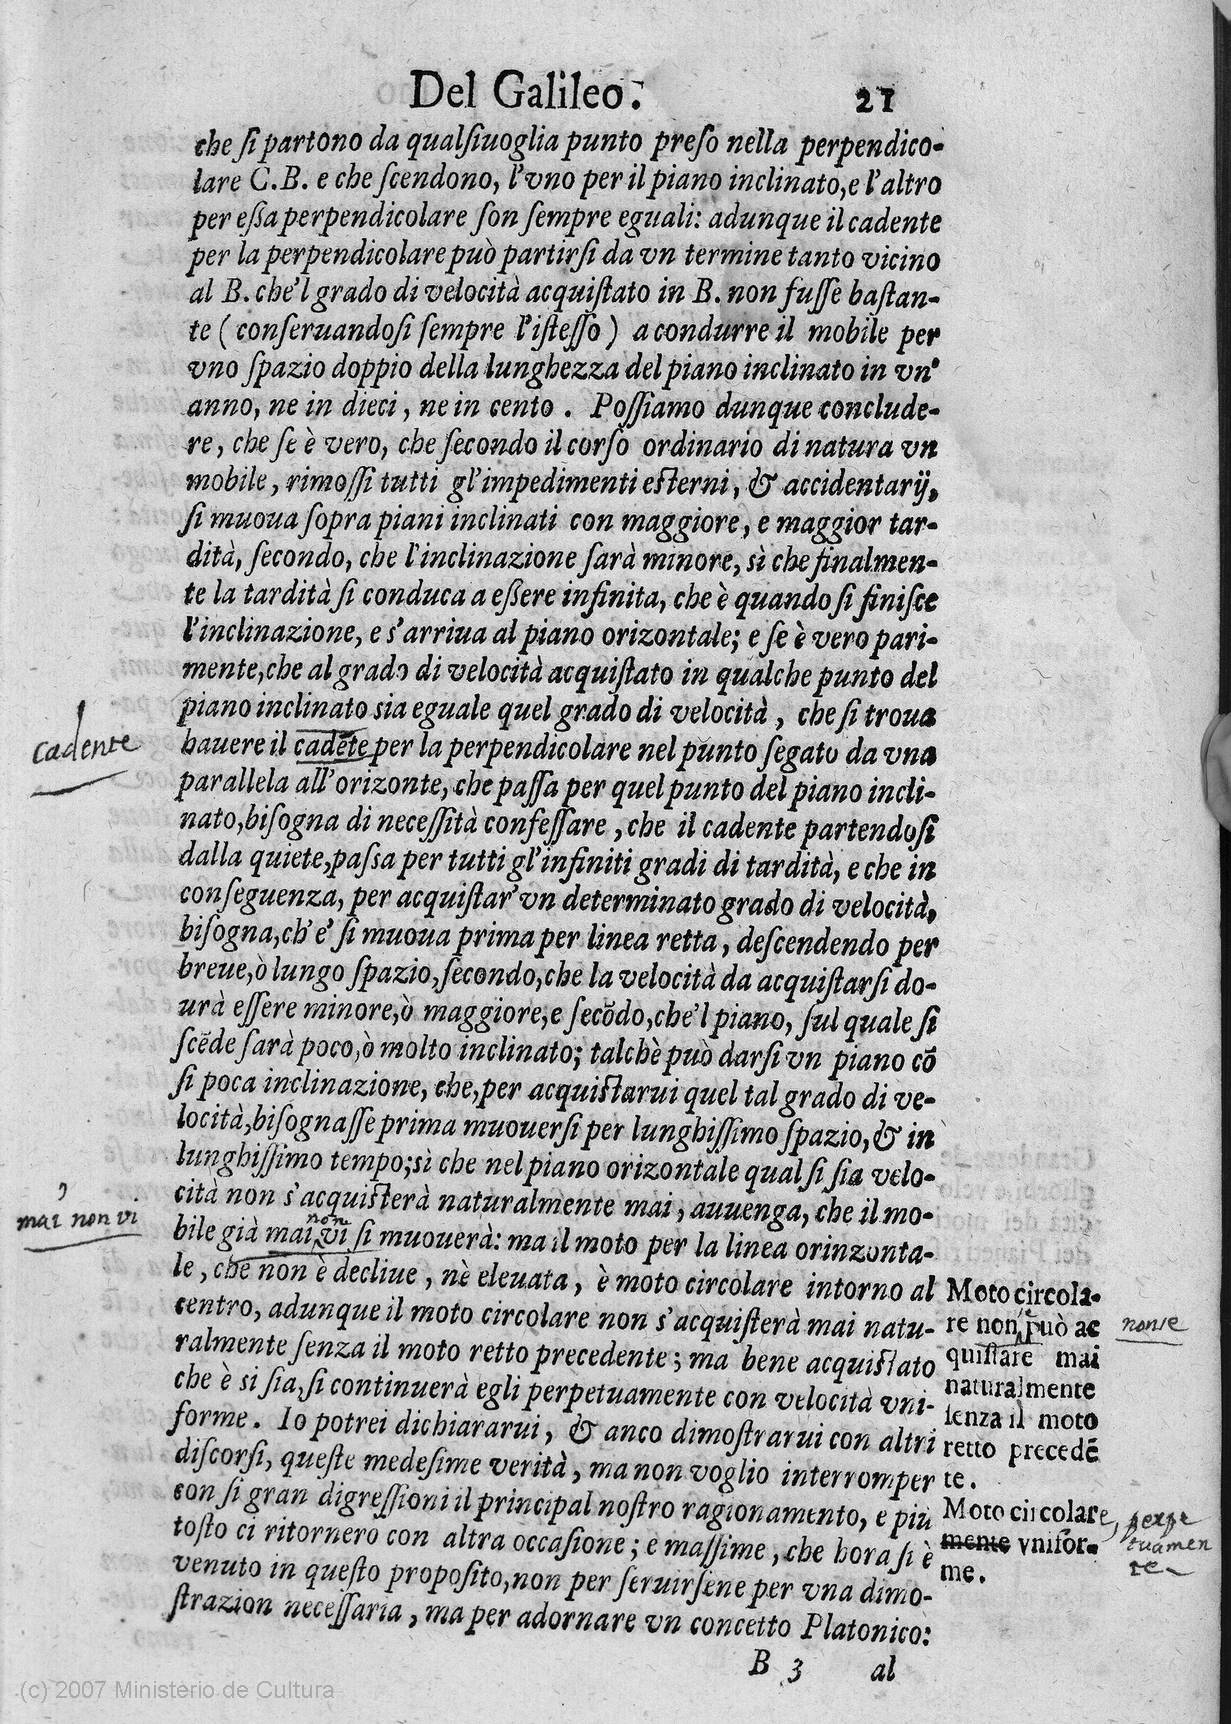 Del Galileo. 21
che ſi partono da qualſiuoglia punto preſo nella perpendico-
lare C.B. e che ſcendono, l'vno per il piano inclinato, e l'altro
per eſſa perpendicolare ſon ſempre eguali: adunque il cadente
per la perpendicolare può partirſi da vn termine tanto vicino
al B. che'l grado di velocità acquiſtato in B. non fuſſe baſtan-
te (conſeruandoſi ſempre l'iſteſſo) a condurre il mobile per
vno ſpazio doppio della lunghezza del piano inclinato in vn'
anno, ne in dieci, ne in cento. Poſſiamo dunque conclude-
re, che ſe è vero, che ſecondo il corſo ordinario di natura vn
mobile, rimoſſi tutti gl'impedimenti eſterni, & accidentarij,
ſi muoua ſopra piani inclinati con maggiore, e maggior tar-
dità, ſecondo, che l'inclinazione ſarà minore, sì che finalmen-
te la tardità ſi conduca a eſſere infinita, che è quando ſi finiſce
l'inclinazione, e s'arriua al piano orizontale; e ſe è vero pari-
mente, che al grado di velocità acquiſtato in qualche punto del
piano inclinato sia eguale quel grado di velocità, che ſi troua
hauere il cadẽte per la perpendicolare nel punto ſegato da vna
cadente
parallela all'orizonte, che paſſa per quel punto del piano incli-
nato, biſogna di neceſſità confeſſare, che il cadente partendoſi
dalla quiete, paſsa per tutti gl'infiniti gradi di tardità, e che in
conſeguenza, per acquiſtar' vn determinato grado di velocità,
biſogna, ch'e' ſi muoua prima per linea retta, deſcendendo per
breue, ò lungo ſpazio, ſecondo, che la velocità da acquiſtarſi do-
urà eſſere minore, ò maggiore, e ſecõdo, che'l piano, ſul quale ſi
ſcẽde ſarà poco, ò molto inclinato; talchè può darſi vn piano cõ
ſi poca inclinazione, che, per acquiſtarui quel tal grado di ve-
locità, biſognaſſe prima muouerſi per lunghiſſimo ſpazio, & in
lunghiſſimo tempo; sì che nel piano orizontale qual ſi ſia velo-
cità non s'acquiſterà naturalmente mai, auuenga, che il mo-
bile già mai non vi ſi muouerà: ma il moto per la linea orinzonta-
mai non vi
le, che non è decliue, nè eleuata, è moto circolare intorno al
centro, adunque il moto circolare non s'acquiſterà mai natu-
ralmente ſenza il moto retto precedente; ma bene acquiſtato
che è si ſia, ſi continuerà egli perpetuamente con velocità vni-
forme. Io potrei dichiararui, & anco dimoſtrarui con altri
diſcorſi, queſte medeſime verità, ma non voglio interromper
con ſi gran digreſſioni il principal noſtro ragionamento, e più
toſto ci ritornero con altra occaſione; e maſſime, che hora ſi è
venuto in queſto propoſito, non per ſeruirſene per vna dimo-
ſtrazion neceſſaria, ma per adornare vn concetto Platonico:
Moto circola-
re non se può ac
non se
quiſtare mai
naturalmente
ſenza il moto
retto precedẽ
te.
Moto circolare,
perpe
tuamen
te
mente vnifor-
me.
B 3 al
(c) 2007 Ministério de Cultura